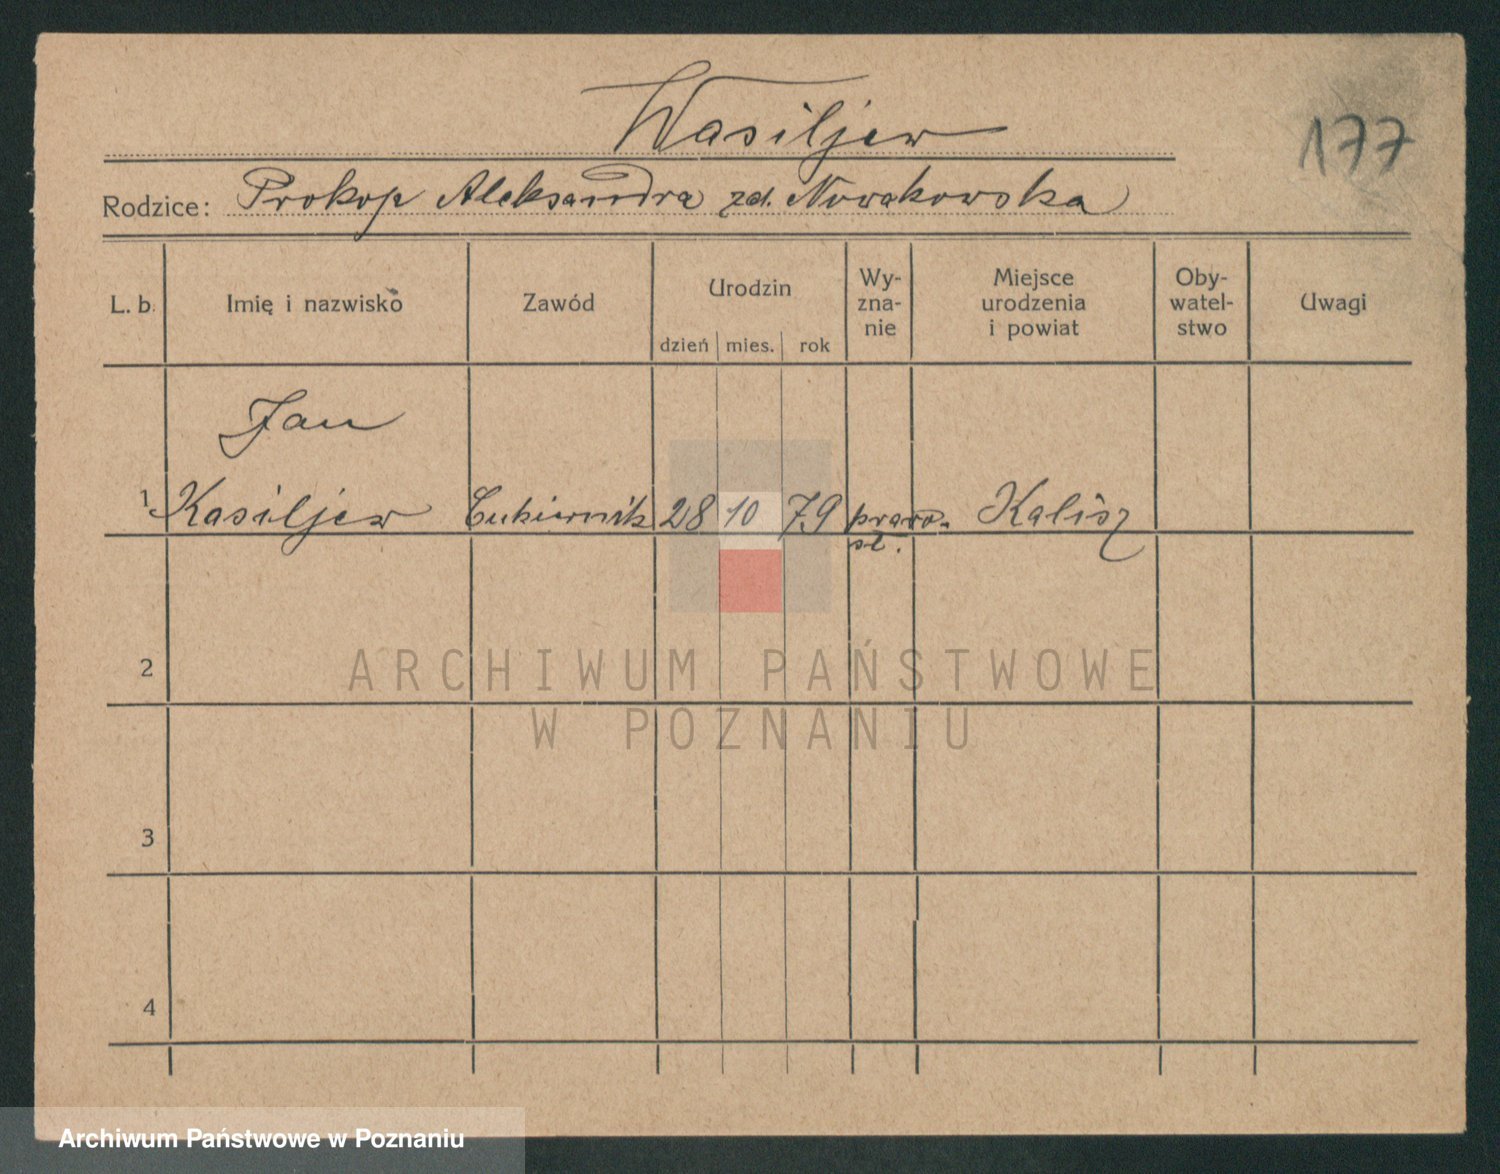 Wasiljew
177
Rodzice: Prokop Aleksandra zd. Nowakowska
L. b. Imię i nazwisko Zawód Urodzin dzień mies. rok Wy-zna-nie Miejsce urodzenia i powiat Oby-watel-stwo Uwagi
Jan
1 Wasiljew Cukiernik 28 10 79 prawo- Kalisz
sł.
2
ARCHIWUM PAŃSTWOWE
W POZNANIU
3
4
Archiwum Państwowe w Poznaniu